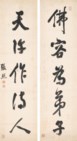 佛容為弟子
天許作詩人